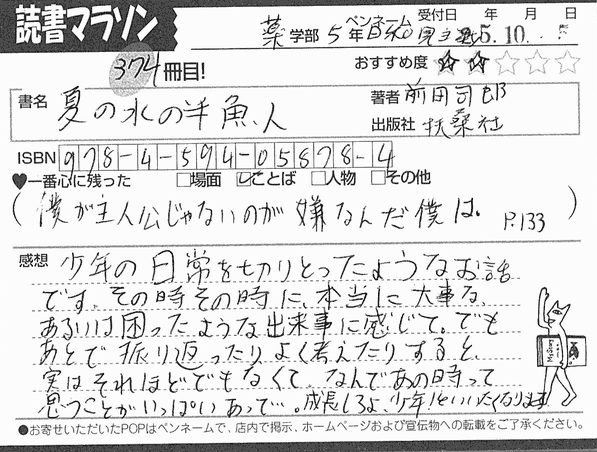 読書マラソン
薬学部 5年 ペンネーム 受付日 年 月 日
5.10. 5
374冊目! おすすめ度 ★★☆☆☆
書名 夏の水の半魚人
著者 前田司郎
出版社 扶桑社
ISBN 978-4-594-05878-4
♥一番心に残った □場面 ☑ことば □人物 □その他
(僕が主人公じゃないのが嫌なんだ僕は。 P.133)
感想 少年の日常を切りとったようなお話
です。その時その時に、本当に大事な、
あるいは困ったような出来事に感じて。でも
あとで振り返ったりよく考えたりすると、
実はそれほどでもなくて、なんであの時って
思うことがいっぱいあって…。成長しろよ、少年!といいたくなります
●お寄せいただいたPOPはペンネームで、店内で掲示、ホームページおよび宣伝物への転載をご了承ください。